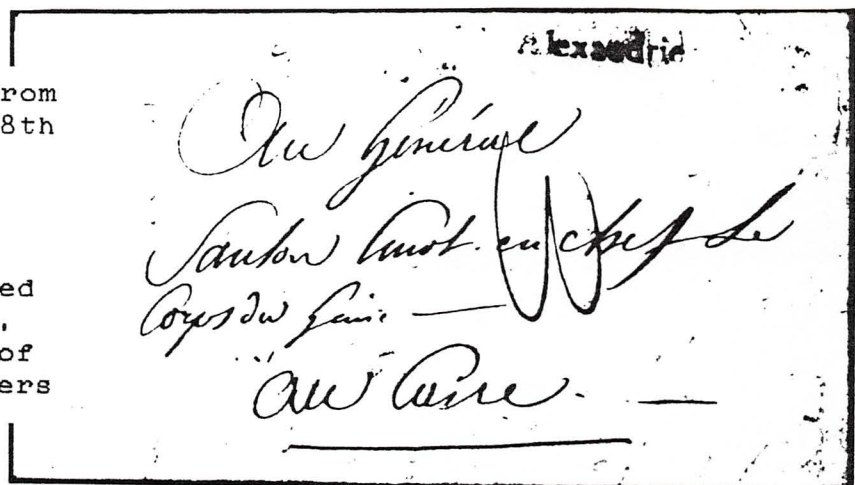 rom
8th
ed
,
of
ers
Alexandrie
Au Général
Sanson en chef le
Corps du Génie
Au Caire.